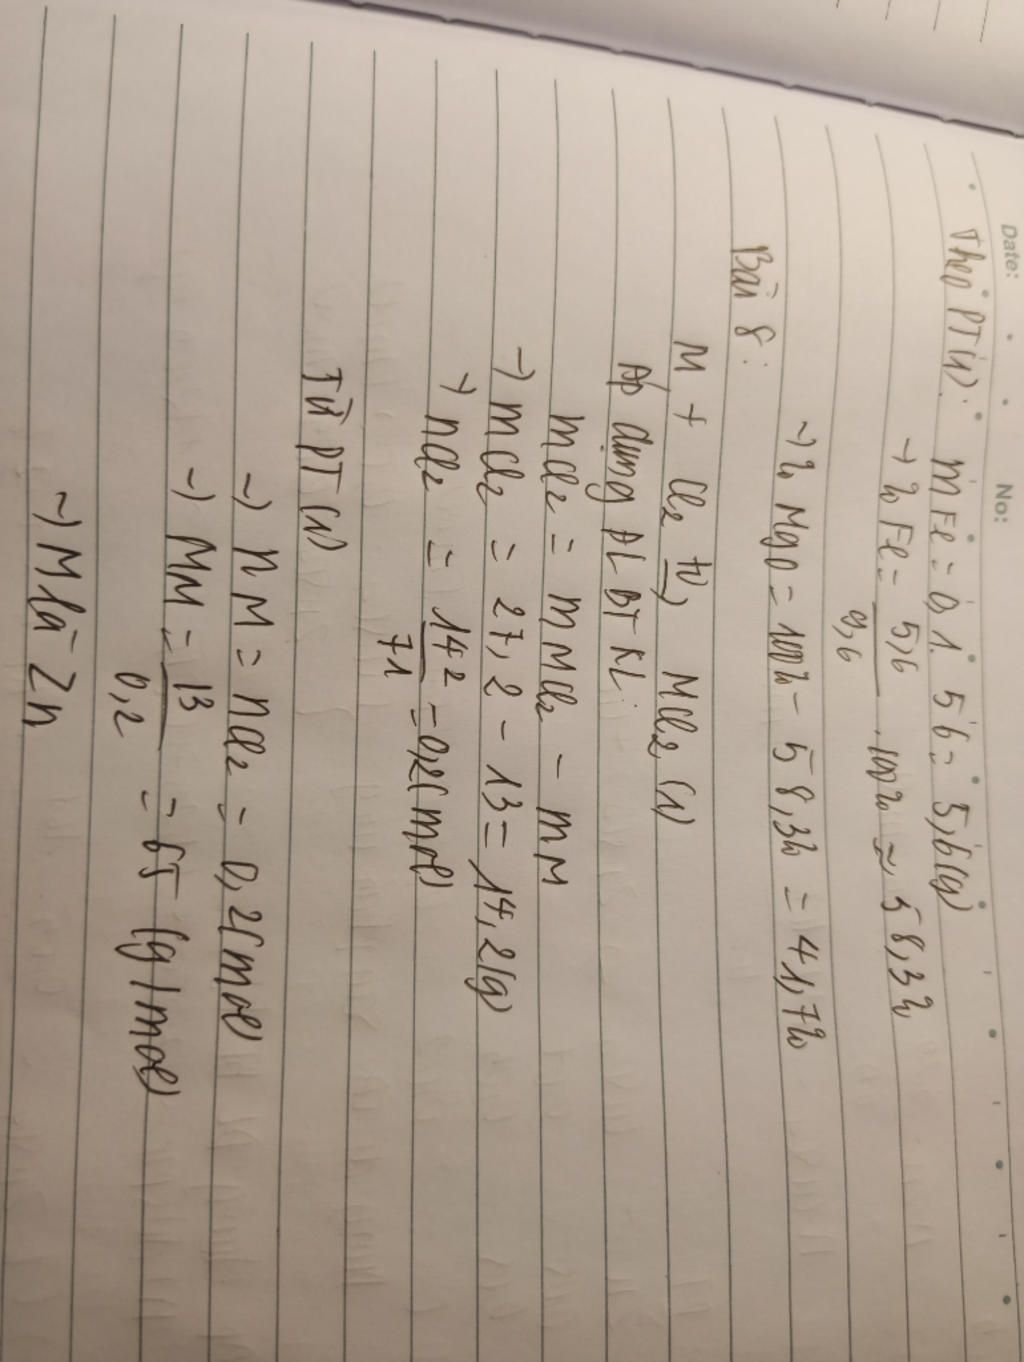 Date: No:
Theo PT(1): mFe = 0,1. 56 = 5,6(g)
→ % Fe = 5,6 / 9,6 . 100% ≈ 58,3%
→ % MgO = 100% - 58,3% = 41,7%
Bài 8:
M + Cl₂ t⁰→ MCl₂ (1)
Áp dụng ĐLBTKL:
mCl₂ = mMCl₂ - mM
→ mCl₂ = 27,2 - 13 = 14,2(g)
→ nCl₂ = 14,2 / 71 = 0,2(mol)
Từ PT (1)
→ nM = nCl₂ = 0,2(mol)
→ MM = 13 / 0,2 = 65 (g/mol)
→ M là Zn